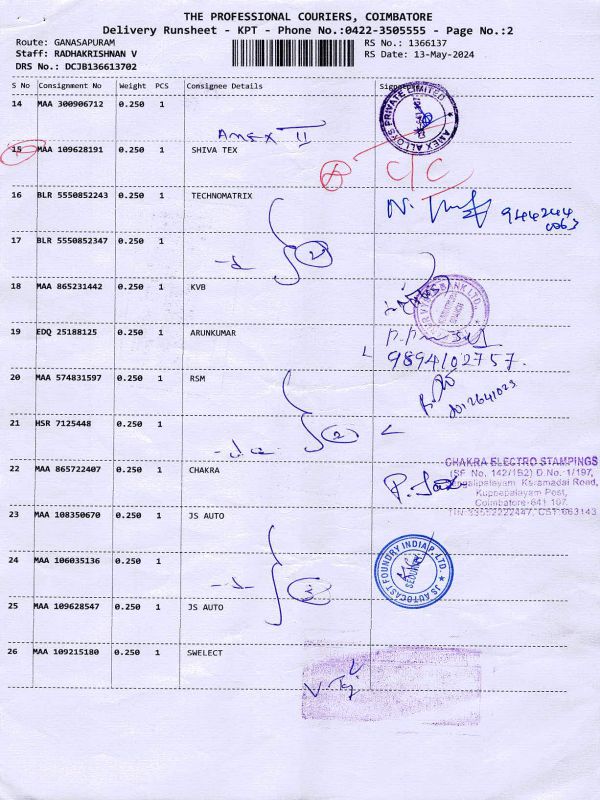 THE PROFESSIONAL COURIERS, COIMBATORE
Delivery Runsheet - KPT - Phone No.:0422-3505555 - Page No.:2
Route: GANASAPURAM
Staff: RADHAKRISHNAN V
DRS No.: DCJB136613702
RS No.: 1366137
RS Date: 13-May-2024
S No Consignment No Weight PCS Consignee Details
14 MAA 300906712 0.250 1
AMEX II
AMEX ALLOKS PRIVATE LIMITED
15 MAA 109628191 0.250 1 SHIVA TEX
C/C
16 BLR 5550852243 0.250 1 TECHNOMATRIX
17 BLR 5550852347 0.250 1
18 MAA 865231442 0.250 1 KVB
19 EDQ 25188125 0.250 1 ARUNKUMAR
9894102757.
20 MAA 574831597 0.250 1 RSM
21 HSR 7125448 0.250 1
22 MAA 865722407 0.250 1 CHAKRA
CHAKRA ELECTRO STAMPINGS
(SF No. 142/1B2) D.No. 1/197,
Karamadai Road,
Kuppepalayam Post,
Coimbatore-641 107.
23 MAA 108350670 0.250 1 JS AUTO
24 MAA 106035136 0.250 1
JS AUTOCAST FOUNDRY INDIA P. LTD.
25 MAA 109628547 0.250 1 JS AUTO
26 MAA 109215180 0.250 1 SWELECT